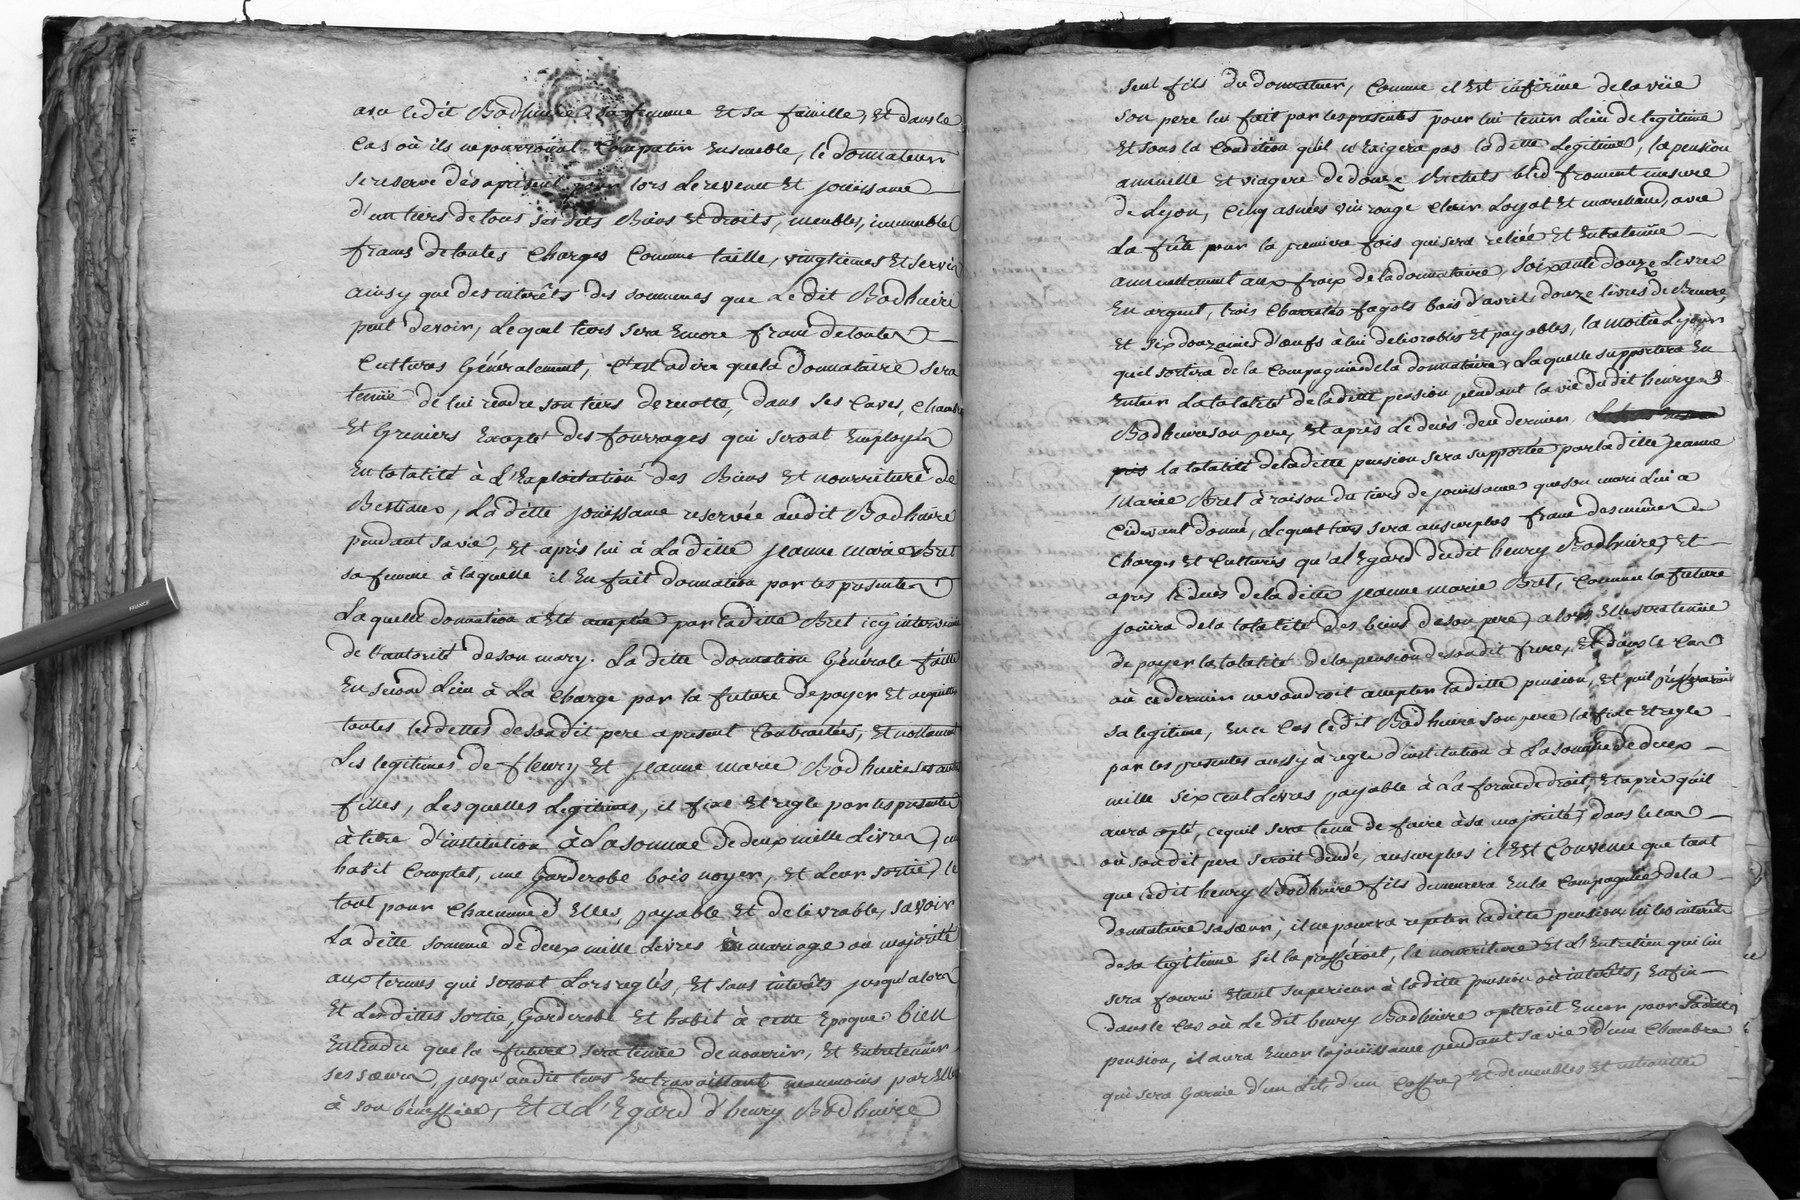 avec ledit Bodhuire sa femme Et sa famille, Et dans le
Cas où ils ne pourroient Compatir Ensemble, le donnateur
se reserve dés apresent pour lors Le revenu Et joüissance
d'un tiers de tous ses dits Biens Et droits, meubles, immeubles
francs de toutes Charges Comme taille, vingtiemes Et servis
ainsy que des interêts des sommes que Le dit Bodhuire
peut devoir, Lequel tiers sera Encore franc de toutes
Cultures Généralement, C'est adire que la donnataire sera
tenüe de lui rendre son tiers de recotte, dans ses Caves, Chambres
Et Greniers Excepté des fourrages qui seront Employés
En totalité à L'Exploitation des Biens Et nourriture de
Bestiaux, La ditte joüissance reservée audit Bodhuire
pendant sa vie, Et après lui à La ditte jeanne marie Bret
sa femme à laquelle il En fait donnation par les presentes
Laquelle donnation a Eté acceptée par la ditte Bret icy intervenüe
de l'autorité de son mary. La ditte donnation Générale faitte
En second Lieu à La Charge par la future de payer Et acquitter
toutes les dettes de sondit pere apresent Contractées, Et nottamment
Les legitimes de fleury Et jeanne marie Bodhuire ses autres
filles, Lesquelles Legitimes, il fixe Et regle par les presentes
à titre d'institution à La somme de deux mille Livres, un
habit Complet, une Garderobe bois noyer, Et Leur sortie, le
tout pour Chacune d'Elles, payable Et delivrable, savoir
La ditte somme de deux mille Livres En mariage ou majorité
aux termes qui seront Lors reglés, Et sans interêts jusqu'alors
Et Lesdittes sortie, Garderobe Et habit à cette Epoque bien
Entendu que la future sera tenüe de nourrir, Et Entretenir
ses sœurs, jusqu'audit tems En travaillant neanmoins par Elles
à son bénéffice, Et a L'Egard d'henry Bodhuire
seul fils du donnateur, Comme il Est infirme de la vüe
son pere lui fait par les presentes pour lui tenir Lieu de legitime
Et sous la Condition qu'il n'Exigera pas la ditte Legitime, la pension
annuelle Et viagere de douze Bichets bled froment mesure
de Lyon, Cinq asnées vin rouge Clair Loyal Et marchand, avec
La fute pour la premiere fois qui sera reliée Et Entretenüe
annuellement aux fraix de la donnataire, soixante douze Livres
En argent, trois Charretées fagots bois d'avril, douze livres de Beurre,
Et six douzaines d'œufs à lui delivrables Et payables, la moitié Lejour
qu'il sortira de la Compagnie de la donnataire, Laquelle supportera En
Entier La totalité de laditte pension pendant la vie du dit henry
Bodhuire son pere, Et après Le decès de ce dernier
la totalité de laditte pension sera supportée par la ditte jeanne
Marie Bret à raison du tiers de joüissance que son mari Lui a
Cidevant donné, Lequel tiers sera ausurplus franc des mêmes
Charges Et Cultures qu'a l'Egard dudit henry Bodhuire, Et
après le decès de la ditte jeanne marie Bret, Comme la future
joüira de la totalité des biens de son pere, alors, Elle sera tenüe
de payer la totalité de la pension de sondit frere, Et dans le Cas
où ce dernier ne voudroit accepter laditte pension, Et qu'il préfferat
sa legitime, En ce Cas ledit Bodhuire son pere la fixe Et regle
par les presentes aussy à regle d'institution à La somme de deux
mille six cent Livres payable à La forme de droit, Et après qu'il
aura opté, ce qu'il sera tenu de faire à sa majorité, dans le cas
où sondit pere seroit decedé, ausurplus il Est Convenu que tant
que ledit henry Bodhuire fils demeurera En la Compagnie de la
donnataire sa sœur, il ne pourra repeter la ditte pension, ni les interêts
de sa legitime s'il la préfféroit, la nourriture Et L'Entretien qui lui
sera fourni Etant superieur à laditte pension où interêts, Enfin
dans le Cas où Le dit henry Bodhuire opteroit Encor pour laditte
pension, il aura Encor la joüissance pendant sa vie d'une Chambre
qui sera Garnie d'un Lit, d'un Coffre, Et de meubles Et ustancilles